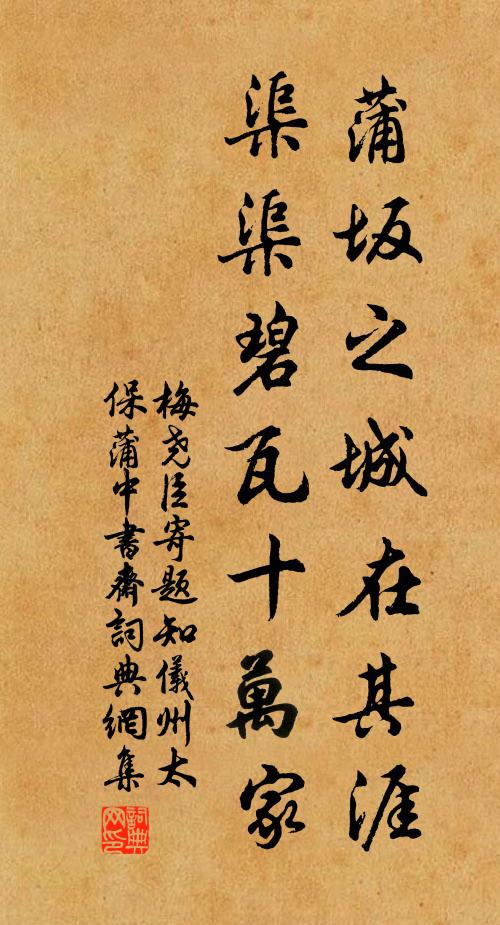 蒲坂之城在其涯
渠渠碧瓦十萬家
梅尧臣寄題知儀州太
保蒲中書齋詞典網集
詞典
网印